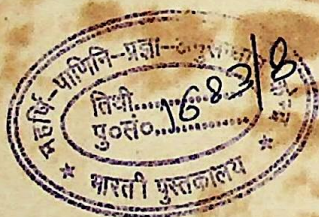 महर्षि-पाणिनि-प्रज्ञा-
तिथी............
पु०सं०..1683/8
* भारती पुस्तकालय *